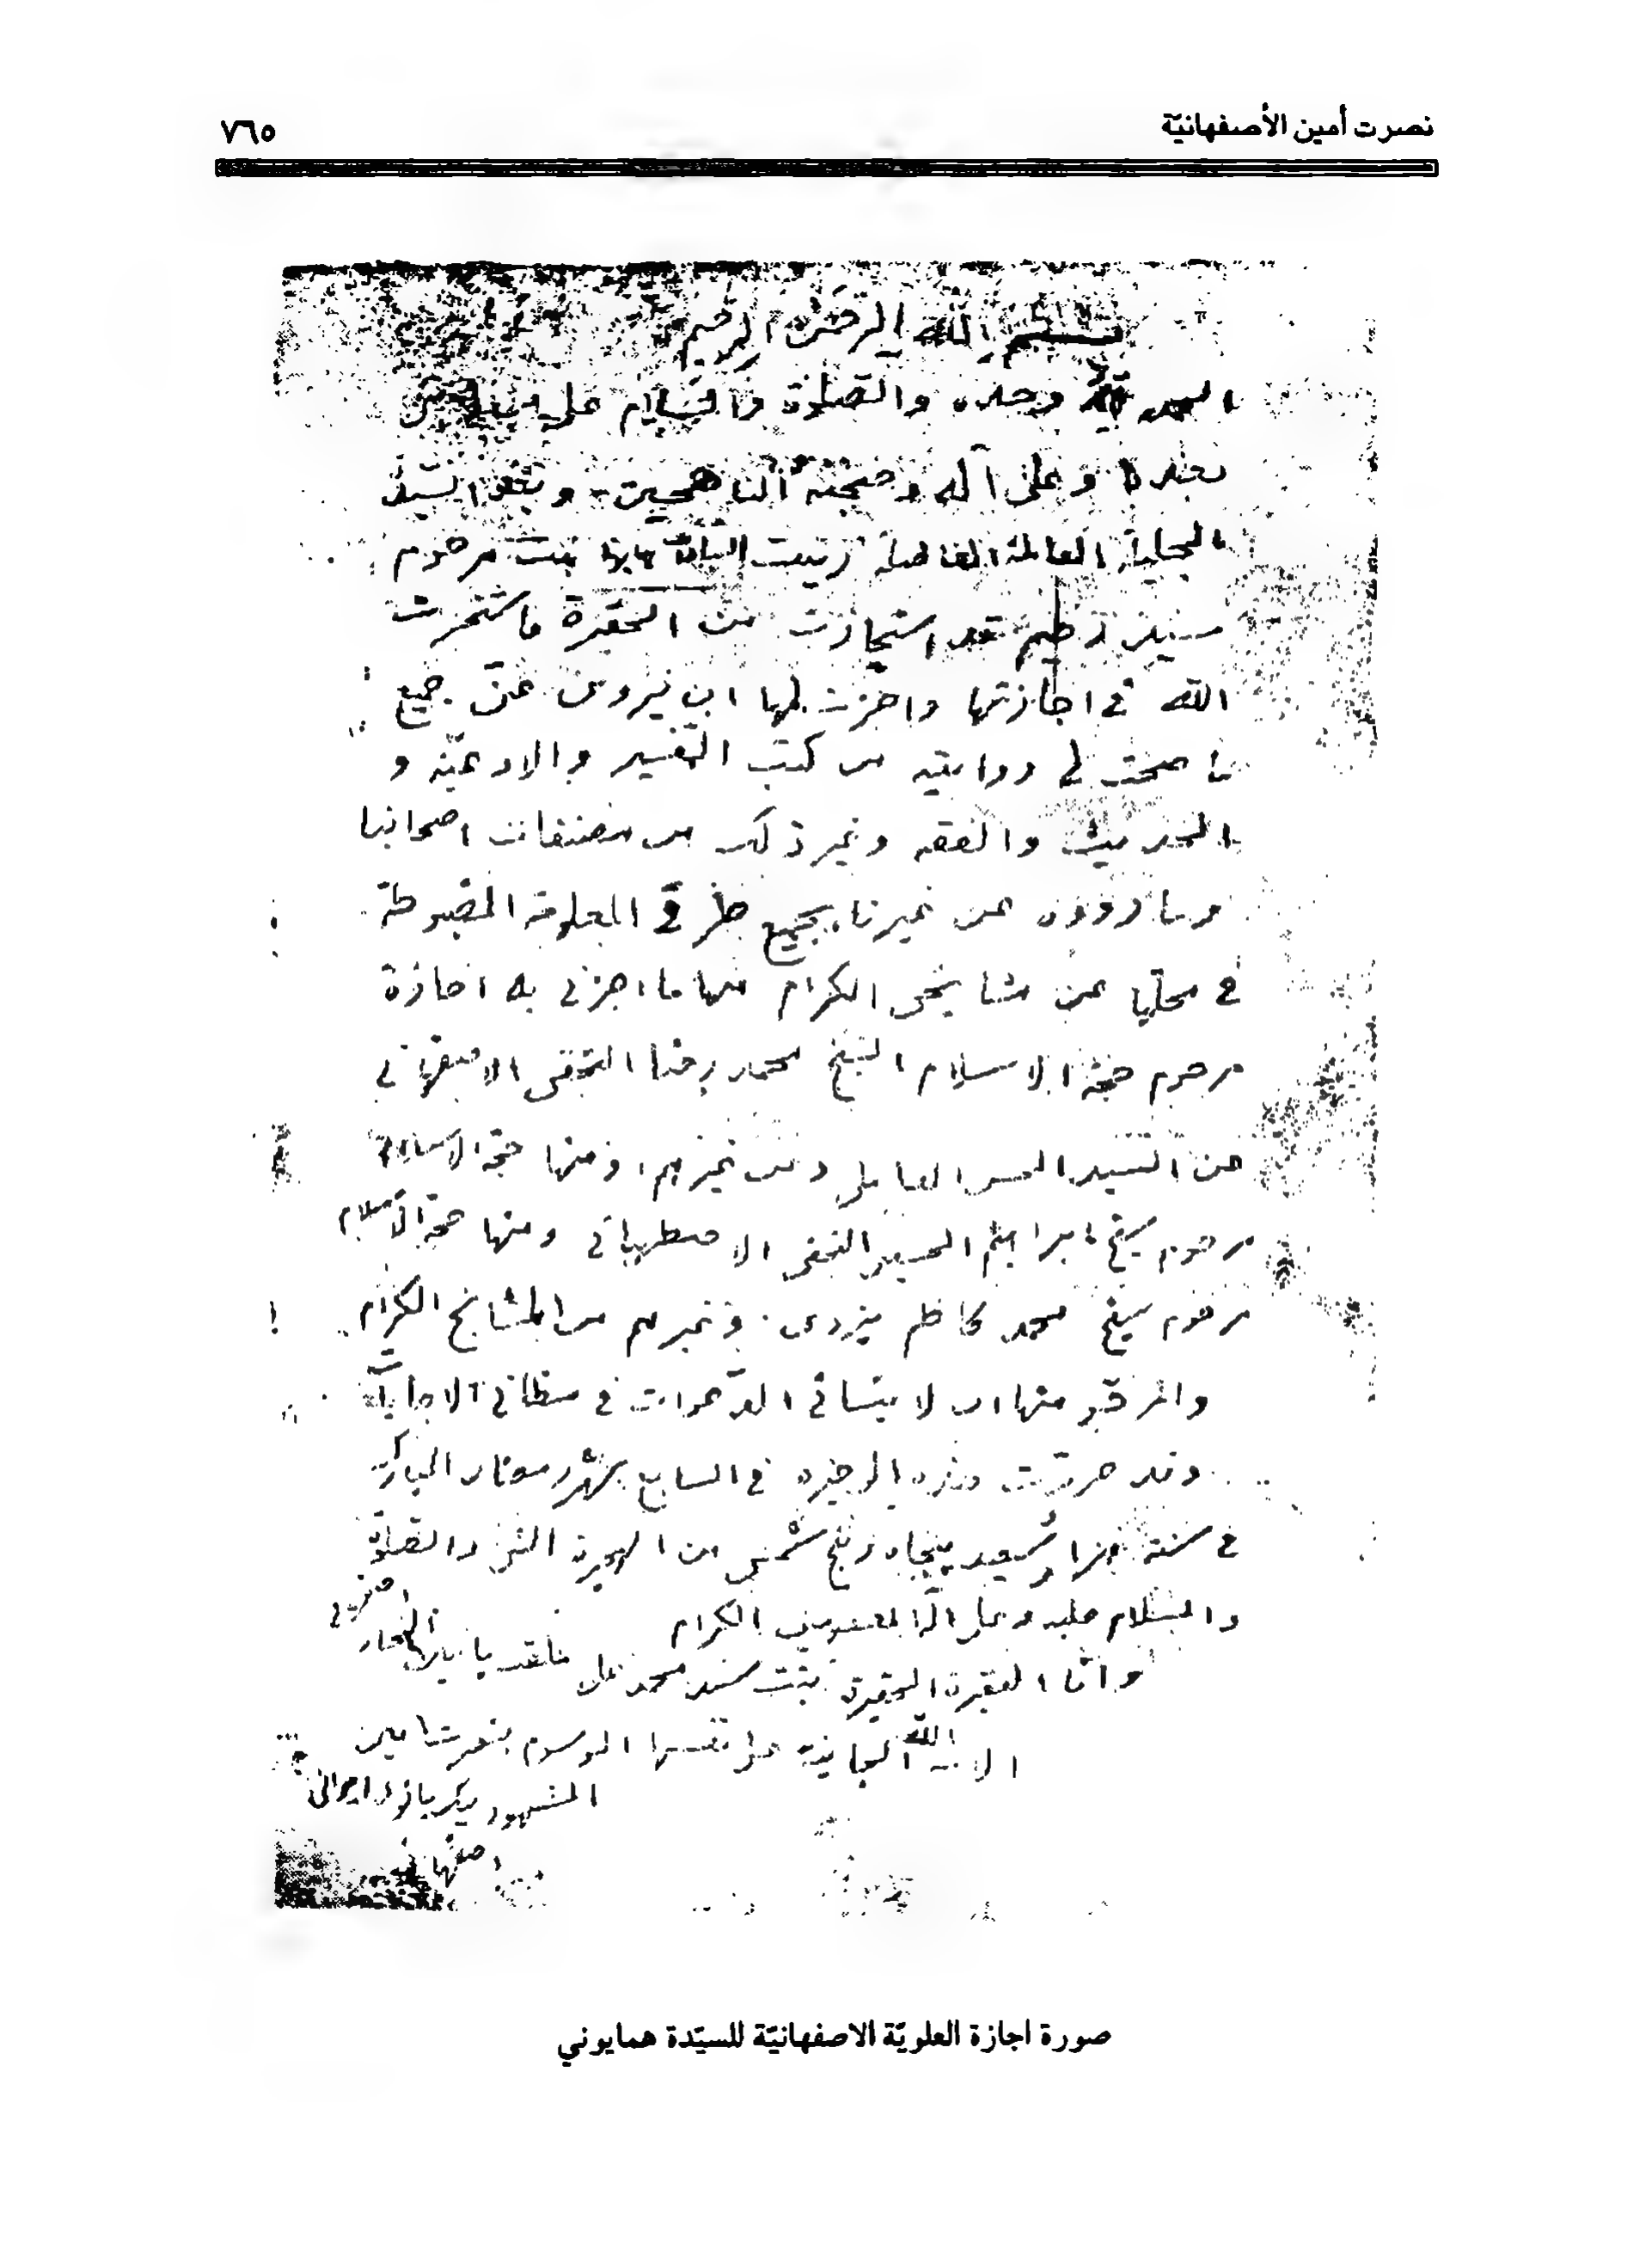 نصرت أمين الأصفهانيّة
٧٦٥
بسم الله الرحمن الرحيم
الحمد لله وحده والصلوة والسلام على من لا نبي
بعده وعلى آله وصحبه وبعد السيدة
الجليلة العالمة الفاضلة زينت السادات همايوني بنت مرحوم
سيد رحيم قد استجازت من الحقيرة فاستخرت
الله في اجازتها واجزت لها ان تروى عنى جميع
ما صحت لى روايته من كتب التفسير والادعية و
الحديث والفقه وغير ذلك من مصنفات اصحابنا
وما رووه عن غيرنا بجميع طرقى المعلومة المضبوطة
فى محلها عن مشايخى الكرام منها ما اجزنى به اجازة
مرحوم حجة الاسلام الشيخ محمد رضا النجفى الاصفهانى
عن السيد الحسن العاملى وعن غيرهم ومنها حجة الاسلام
مرحوم شيخ ابراهيم الحسينى النجفى الاصطهباناتى ومنها حجة الاسلام
مرحوم شيخ محمد كاظم يزدى وغيرهم من المشايخ الكرام
والمرجو منها ان لا ينسانى الدعوات فى مظانى الاجابة
وقد حررت هذه الوجيزه فى السابع شهر رمضان المبارك
فى سنة هزار وسيصد پنجاه و پنج شمسى من الهجرة النبى والصلوة
والسلام عليه وعلى آله المعصومين الكرام
وانا الفقيرة الحقيرة بنت سيد محمد على ملقب بامين التجار اصفهانى
الامة الله الجانية على نفسها الموسوم بنصرت امين
المشهور ببكم بانوى ايرانى
اصفهانى
صورة اجازة العلويّة الاصفهانيّة للسيّدة همايوني